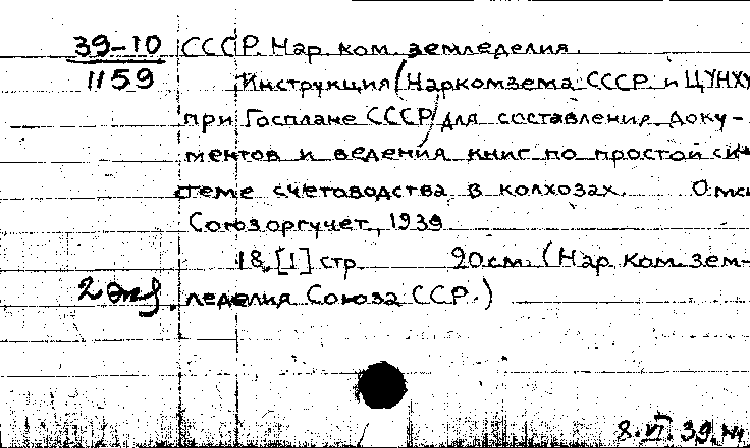 39-10 СССР. Нар. ком. земледелия.
1159 Инструкция (Наркомзема СССР и ЦУНХУ
при Госплане СССР) для составления доку-
ментов и ведения книг по простой си-
стеме счетоводства в колхозах. Омск
Союзоргучет, 1939
18, [1] стр. 20 см. (Нар. ком. зем-
2 экз. леделия Союза ССР.)
8.VI.39